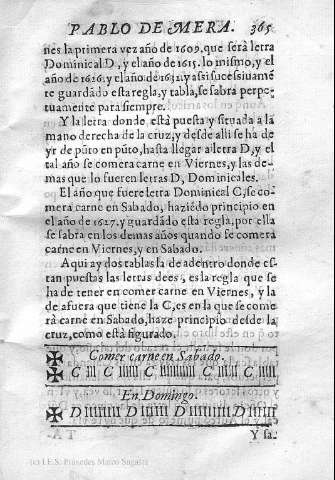 PABLO DE MERA. 365
nes la primera vez año de 1609. que serà letra
Dominical D, y el año de 1615. lo mismo, y el
año de 1626. y el año de 1632. y assi sucessiuamē
te guardādo esta regla, y tabla, se sabra perpe-
tuamente para siempre.
Y la letra donde està puesta y situada à la
mano derecha de la cruz, y desde alli se ha de
yr de pūto en pūto, hasta llegar à letra D, y el
tal año se comera carne en Viernes, y las de-
mas que lo fueren letras D, Dominicales.
El año que fuere letra Dominical C, se co-
mera carne en Sabado, haziēdo principio en
el año de 1627. y guardādo esta regla, por ella
se sabra en los demas años quando se comera
carne en Viernes, y en Sabado.
Aqui ay dos tablas la de adentro donde es-
tan puestas las letras dees, es la regla que se
ha de tener en comer carne en Viernes, y la
de afuera que tiene la C, es en la que se come
rà carne en Sabado, haze principio desde la
cruz, como està figurado.
Comer carne en Sabado.
C C C C C
En Domingo.
D D D D
Y la
(c) I.E.S. Práxedes Mateo Sagasta